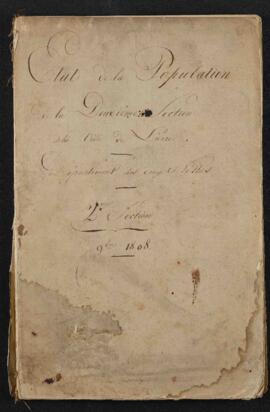 Etat de la Population
de la Deuxieme Section
de la Ville de
Département des
2e Section
9bre 1808